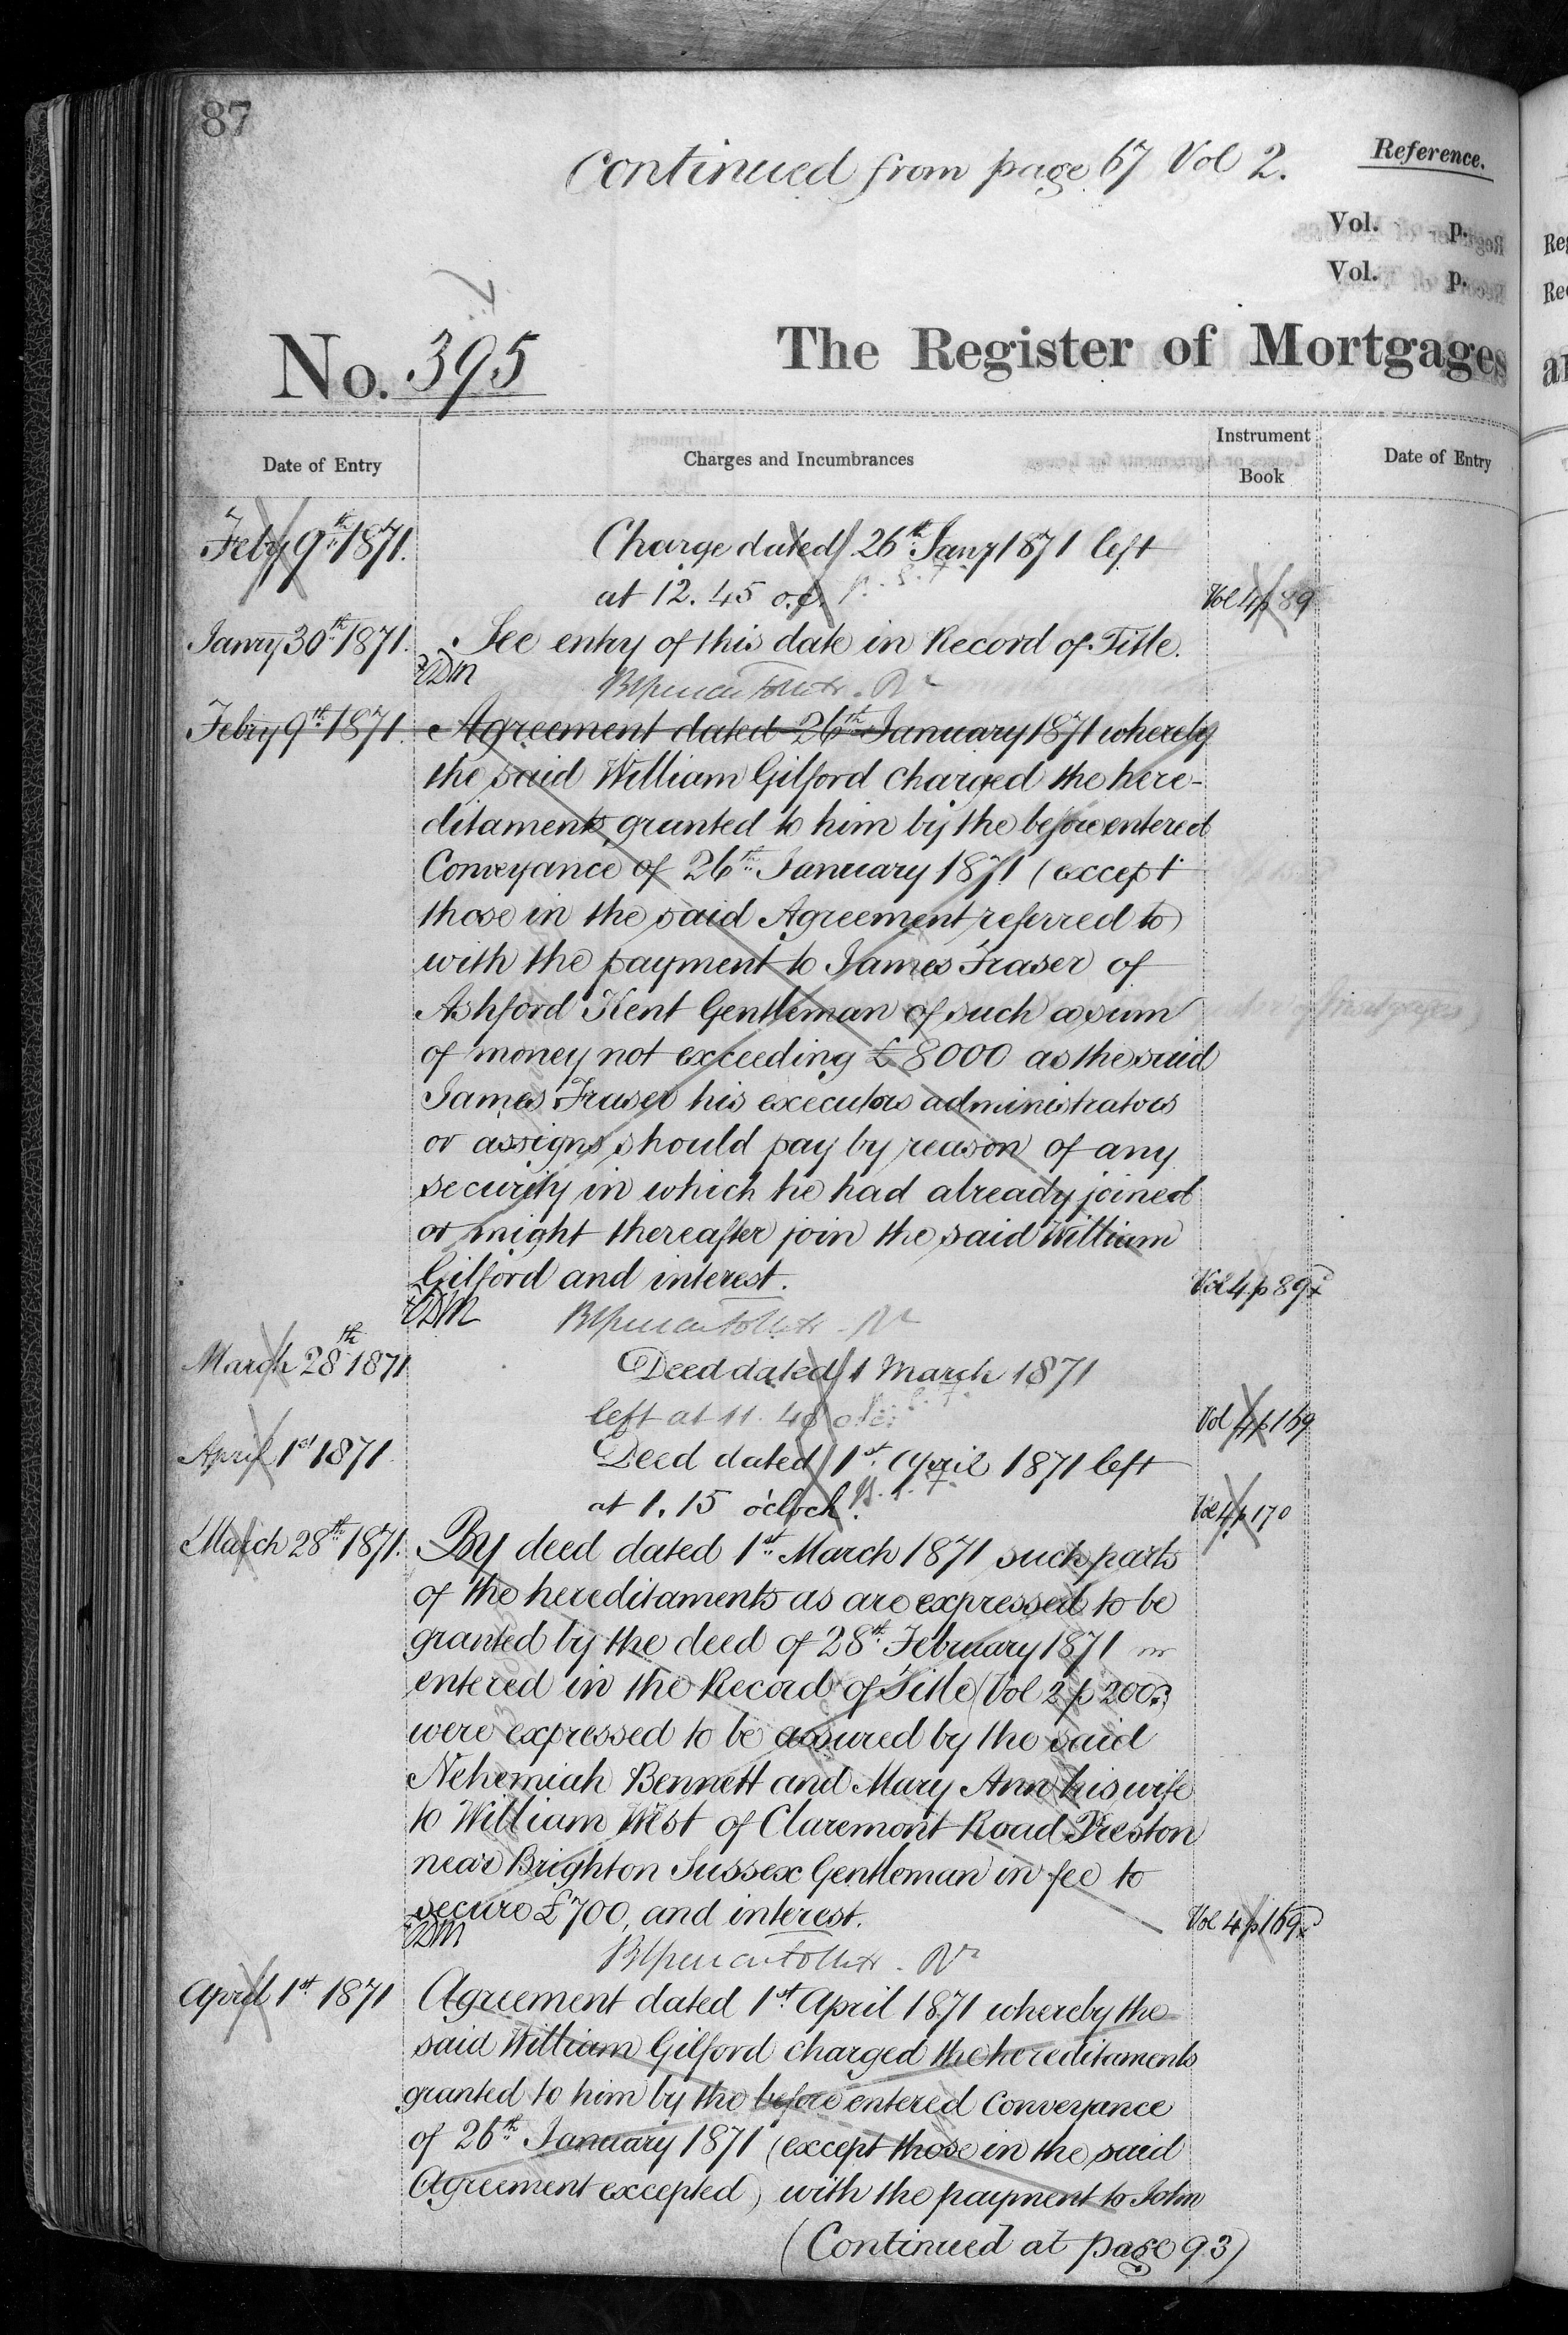 87
Continued from page 67 Vol 2.
Reference.
Vol. p.
Vol. p.
No. 395
The Register of Mortgages
Date of Entry
Charges and Incumbrances
Instrument Book
Date of Entry
Feby 9th 1871. Charge dated 26th Jany 1871 left
at 12.45 o.c. Vol 4 p 89
Janry 30th 1871. See entry of this date in Record of Title.
Febry 9th 1871. Agreement dated 26th January 1871 whereby
the said William Gilford charged the here-
ditaments granted to him by the before entered
Conveyance of 26th January 1871 (except
those in the said Agreement referred to)
with the payment to James Fraser of
Ashford Kent Gentleman of such a sum
of money not exceeding £8000 as the said
James Fraser his executors administrators
or assigns should pay by reason of any
security in which he had already joined
or might thereafter join the said William
Gilford and interest. Vol 4 p 89
March 28th 1871 Deed dated 1 March 1871
left at 11.40 o.c. Vol 4 p 169
April 1st 1871 Deed dated 1st April 1871 left
at 1.15 o'clock. Vol 4 p 170
March 28th 1871. By deed dated 1st March 1871 such parts
of the hereditaments as are expressed to be
granted by the deed of 28th February 1871
entered in the Record of Title (Vol 2 p 200)
were expressed to be assured by the said
Nehemiah Bennett and Mary Ann his wife
to William West of Claremont Road Preston
near Brighton Sussex Gentleman in fee to
secure £700, and interest. Vol 4 p 169
April 1st 1871 Agreement dated 1st April 1871 whereby the
said William Gilford charged the hereditaments
granted to him by the before entered Conveyance
of 26th January 1871 (except those in the said
Agreement excepted) with the payment to John
(Continued at page 93)